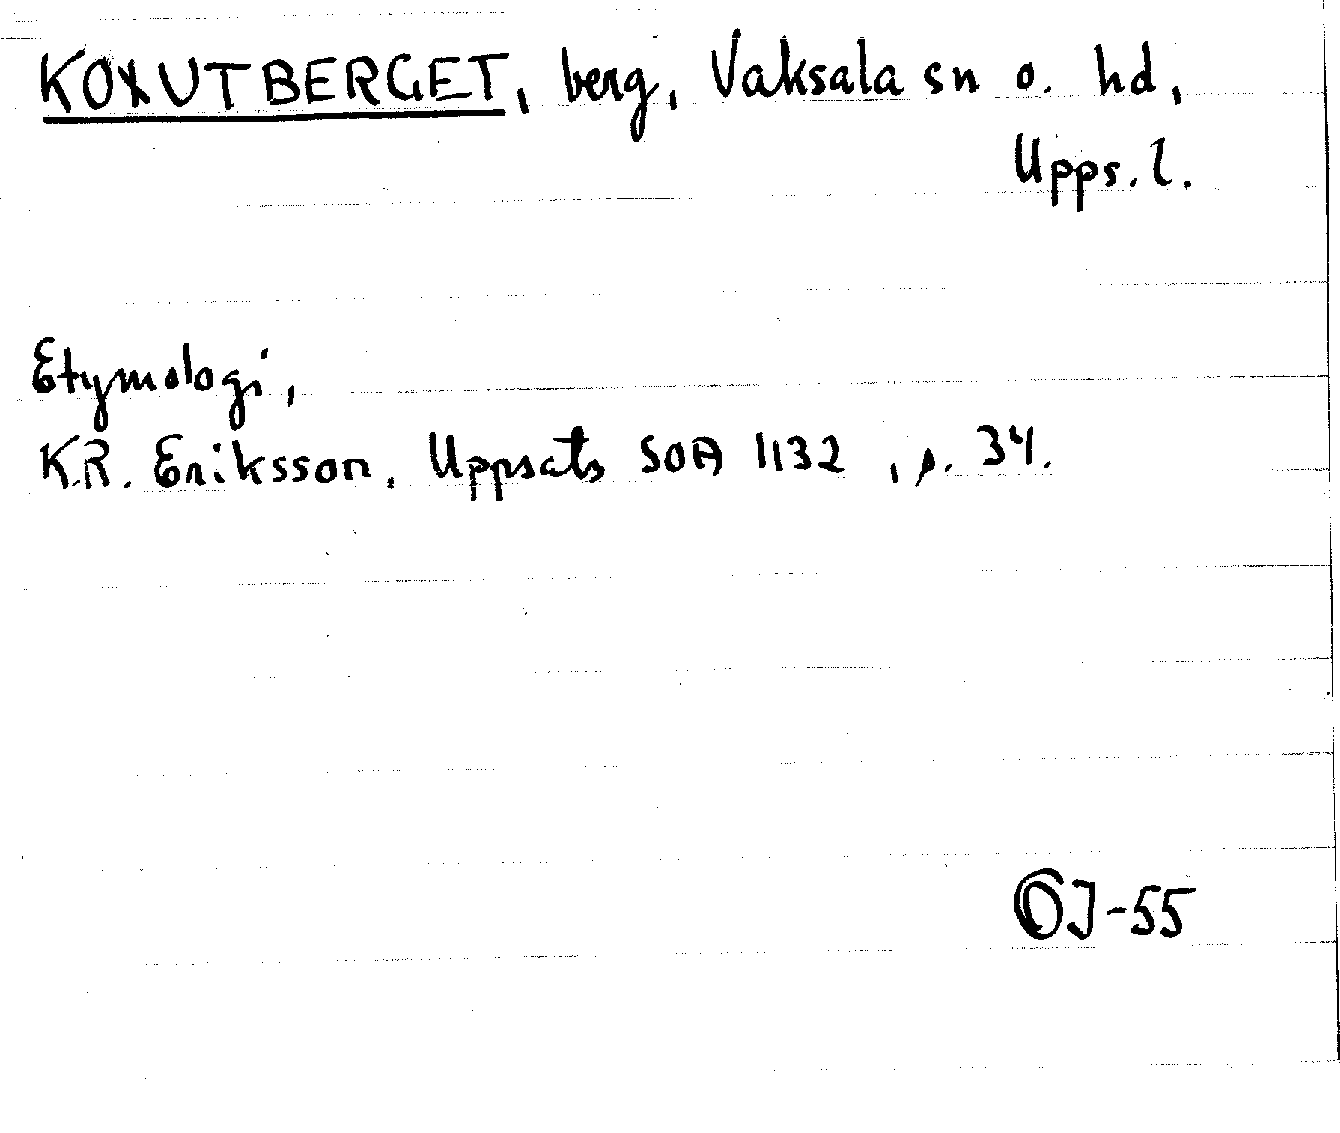 KOXUTBERGET, berg, Vaksala sn o. hd,
Upps. l.
Etymologi,
K.R. Eriksson, Uppsats SOA 1132, p. 34.
OJ-55